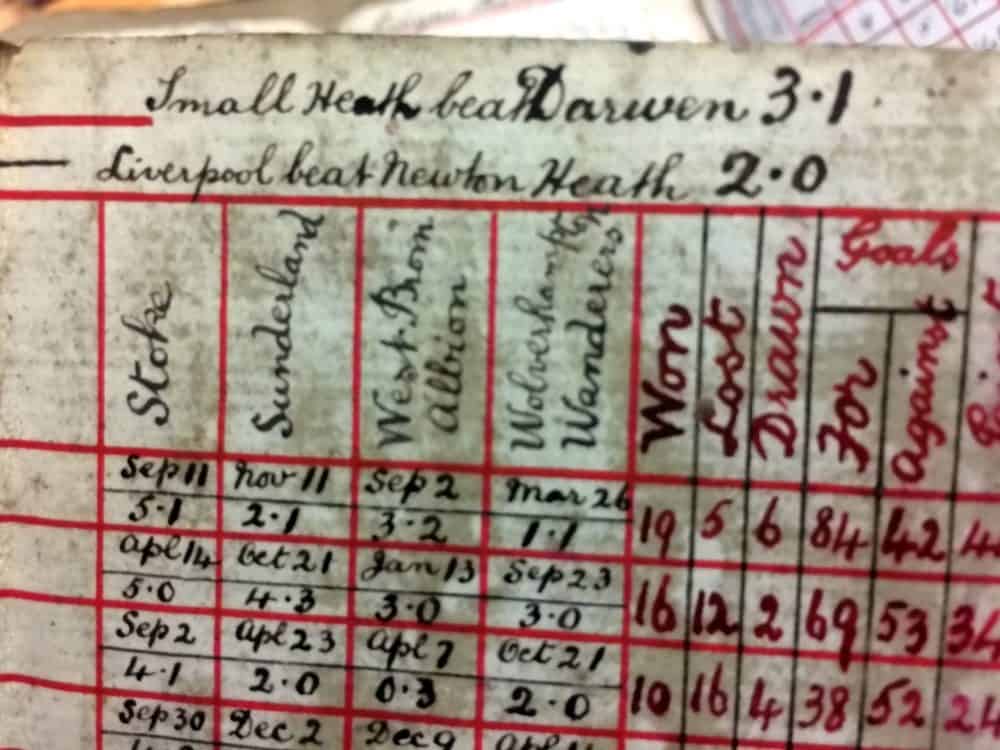 Small Heath beat Darwen 3·1
Liverpool beat Newton Heath 2·0
Stoke
Sunderland
West Brom
Albion
Wolverhampton
Wanderers
Won
Lost
Drawn
Goals
For
Against
Sep 11 Nov 11 Sep 2 Mar 26
5·1 2·1 3·2 1·1 19 5 6 84 42
Apl 14 Oct 21 Jan 13 Sep 23
5·0 4·3 3·0 3·0 16 12 2 69 53 34
Sep 2 Apl 23 Apl 7 Oct 21
4·1 2·0 0·3 2·0 10 16 4 38 52 24
Sep 30 Dec 2 Dec 9